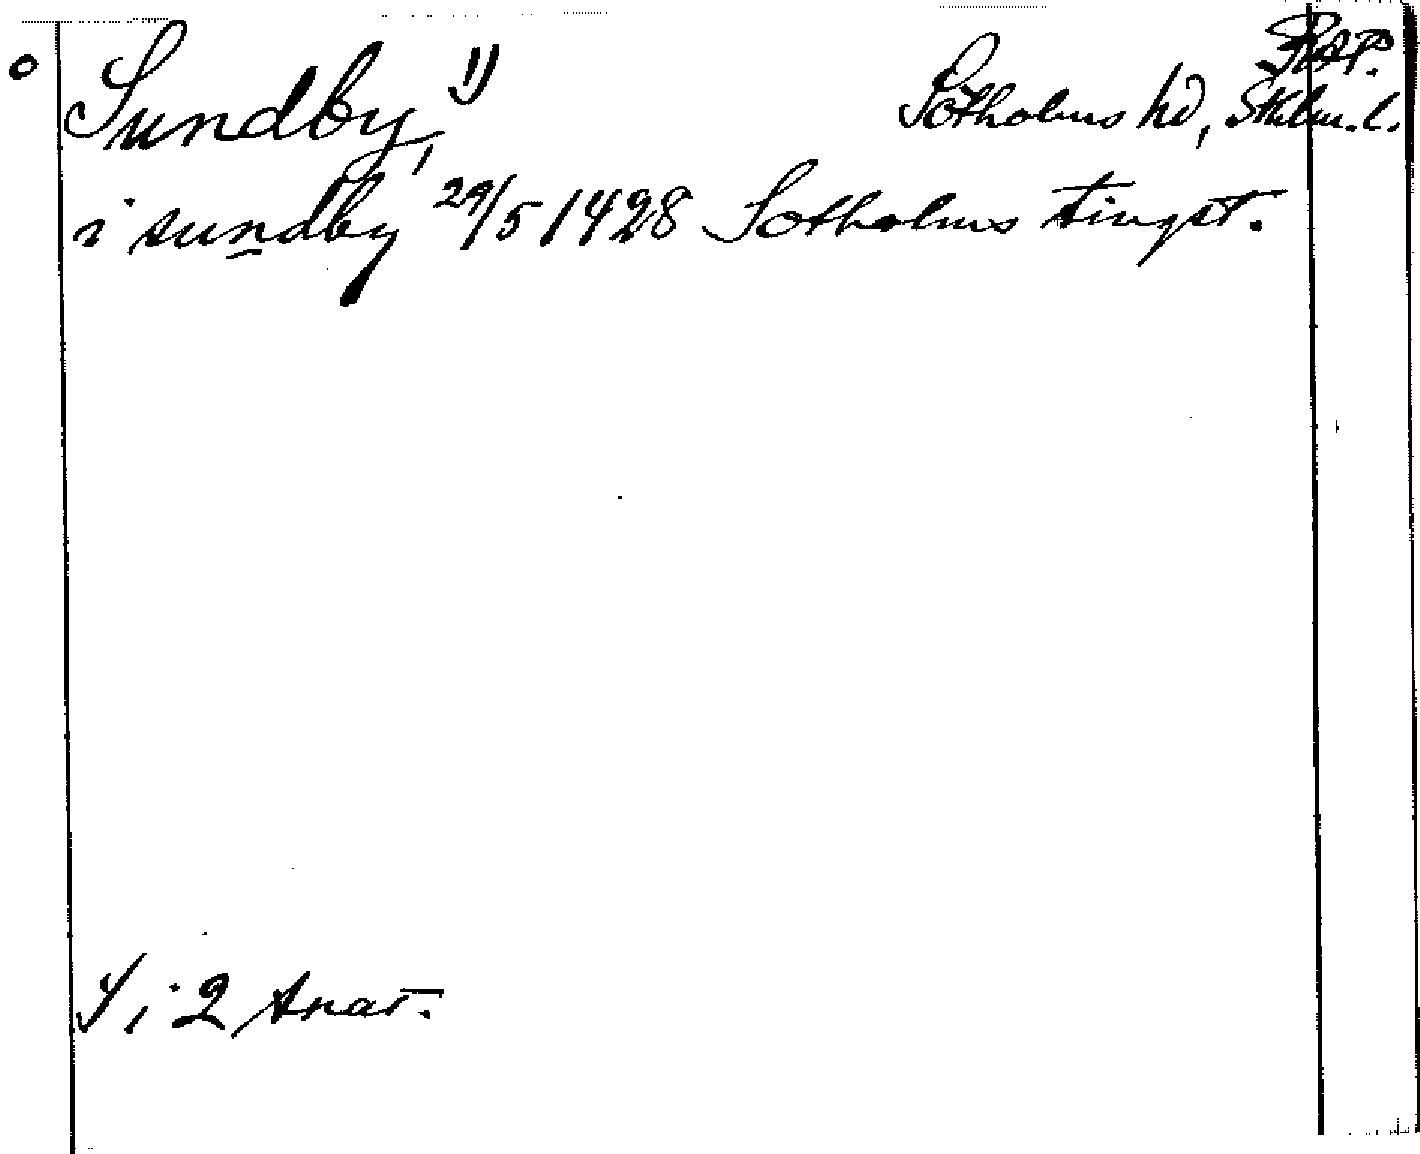 RAP.
Sundby, 1) Sotholms hd, Sthlm. l.
i sundby 29/5 1428 Sotholms tingst.
1) i 2